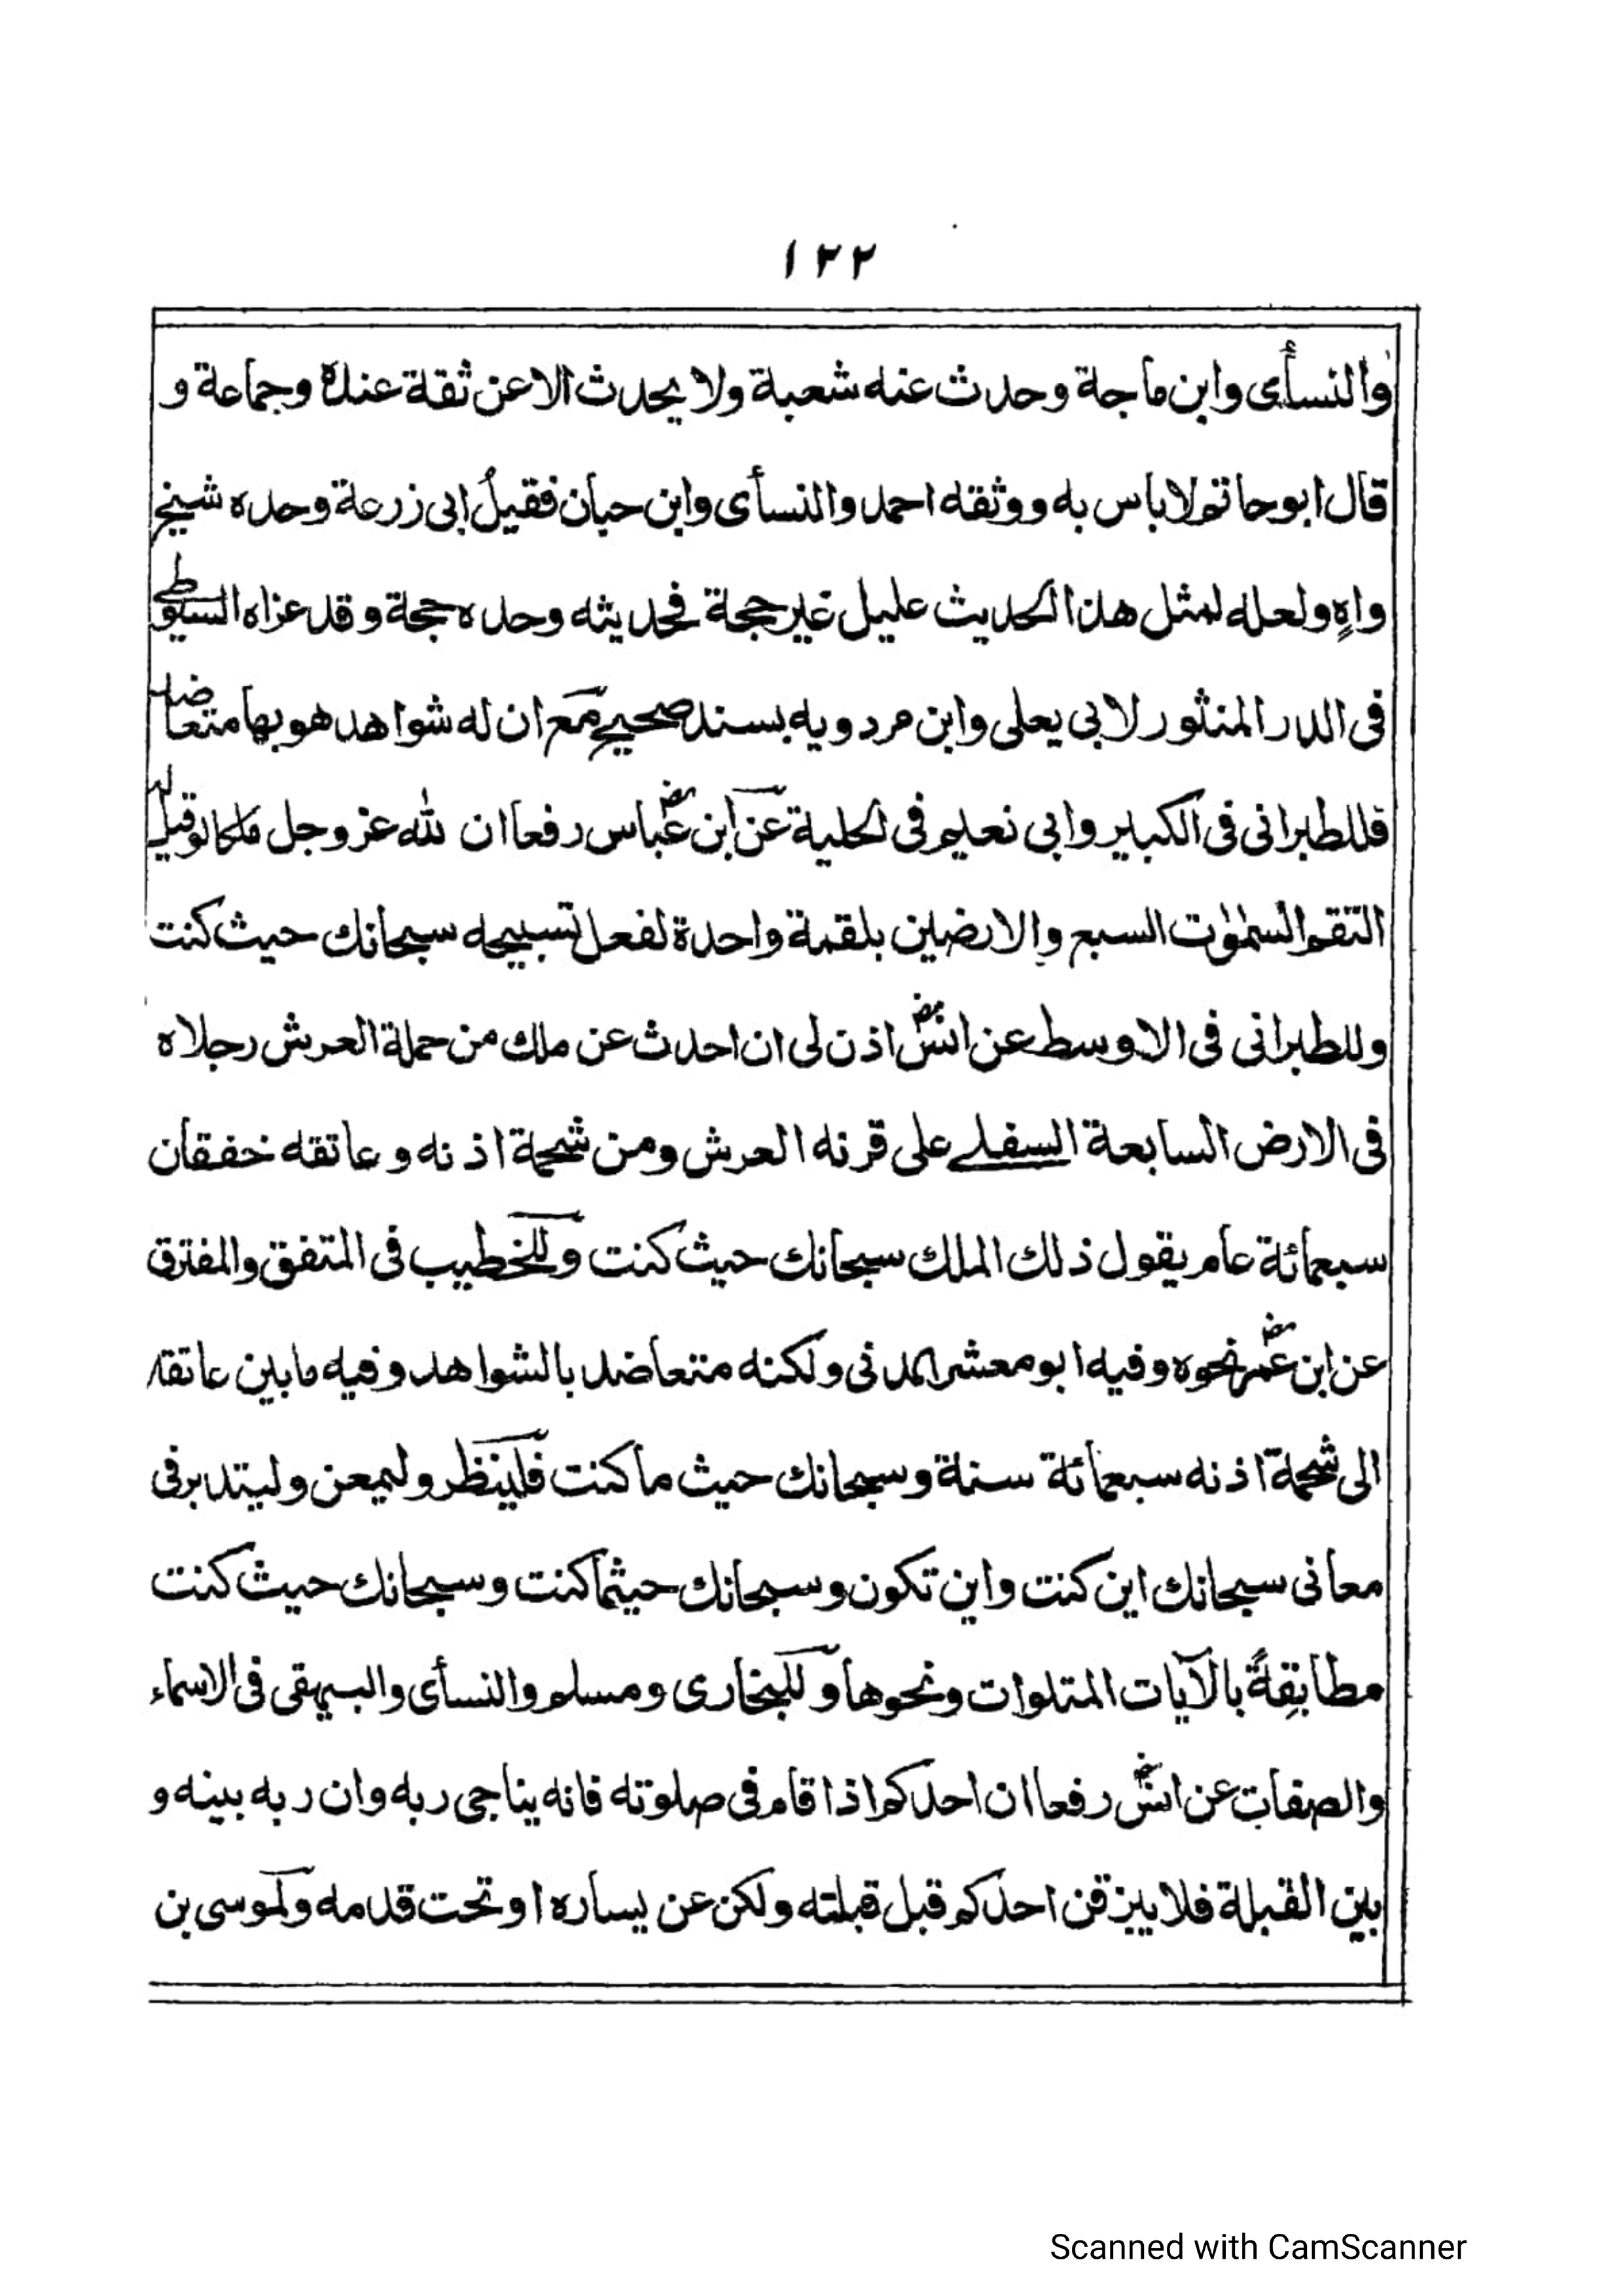 ١٢٢
والنسأى وابن ماجة وحدث عنه شعبة ولا يحدث الا عن ثقة عندہ وجماعة و
قال ابوحاتم لاباس به ووثقه احمد والنسأى وابن حبان فقيلُ ابى زرعة وحده شيخ
واهٍ ولعله لمثل هذا الحديث عليل غير حجة فحديثه وحده حجة وقد عزاه السيوطے
فى الدر المنثور لابى يعلى وابن مردويه بسند صحيح مع ان له شواهد هو بها متعاضد
فللطبرانى فى الكبير وابى نعيم فى الحلية عن ابن عباسؓ رفعا ان لله عز وجل ملكا لو قيل له
التقم السمٰوٰت السبع والارضين بلقمة واحدة لفعل تسبيحه سبحانك حيث كنت
وللطبرانى فى الاوسط عن انسؓ اذن لى ان احدث عن ملك من حملة العرش رجلاه
فى الارض السابعة السفلے على قرنه العرش ومن شحمة اذنه وعاتقه خفقان
سبعمائة عام يقول ذلك الملك سبحانك حيث كنت وللخطيب فى المتفق والمفترق
عن ابن عمرؓ نحوه وفيه ابو معشر المدنى ولكنه متعاضد بالشواهد وفيه ما بين عاتقه
الى شحمة اذنه سبعمائة سنة وسبحانك حيث ما كنت فلينظر وليمعن وليتدبر فى
معانى سبحانك اين كنت واين تكون وسبحانك حيثما كنت وسبحانك حيث كنت
مطابِقةً بالآيات المتلوات ونحوها وللبخارى ومسلم والنسأى والبيهقى فى الاسماء
والصفات عن انسؓ رفعا ان احدكم اذا قام فى صلوته فانه يناجى ربه وان ربه بينه و
بين القبلة فلا يبزقن احدكم قبل قبلته ولكن عن يساره او تحت قدمه ولموسى بن
Scanned with CamScanner